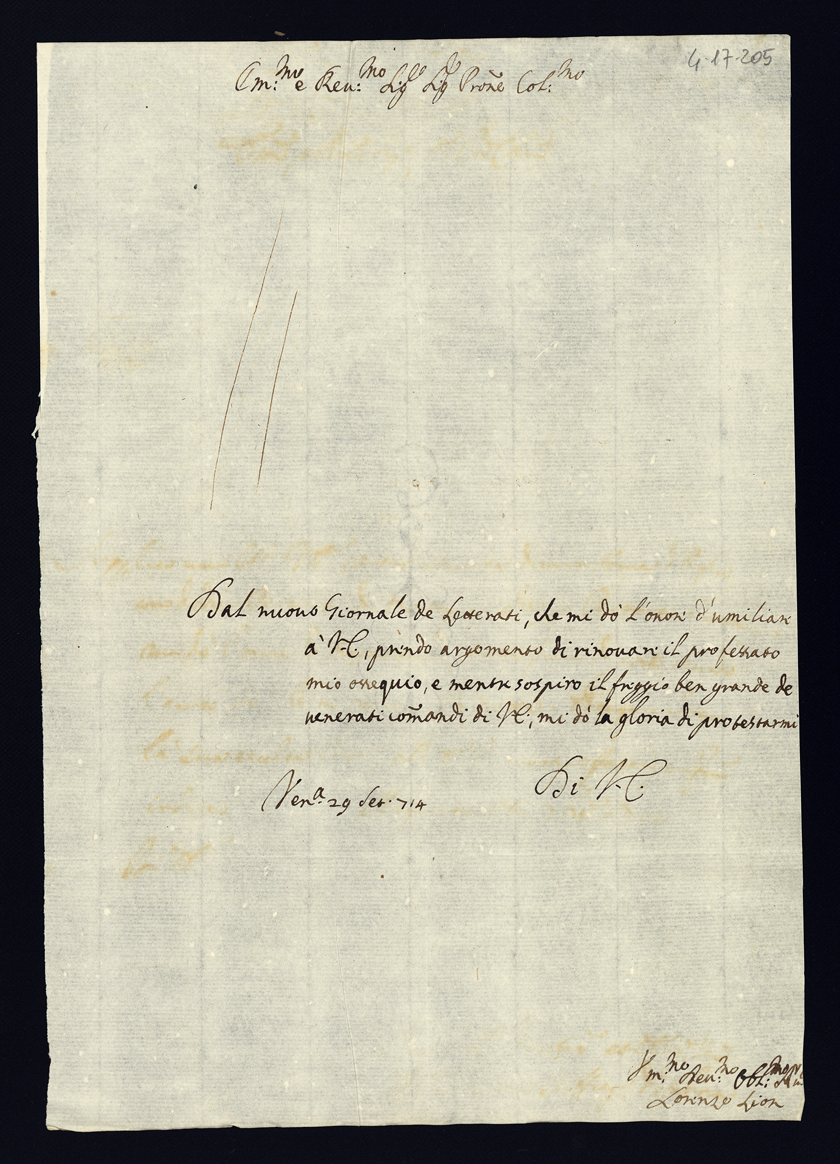 4-17-205
Em:mo e Reu:mo Sig.r Sig.r Prone Col:mo
Dal nuouo Giornale de Letterati, che mi dò l'onore d'umiliare
à V.E., prendo argomento di rinouare il professato
mio ossequio, e mentre sospiro il freggio ben grande de
uenerati comãdi di V.E., mi dò la gloria di protestarmi
Di V.E.
Ven.a 29 Set. 714
Vm:mo Deu:mo Obl:mo
Lorenzo Lion